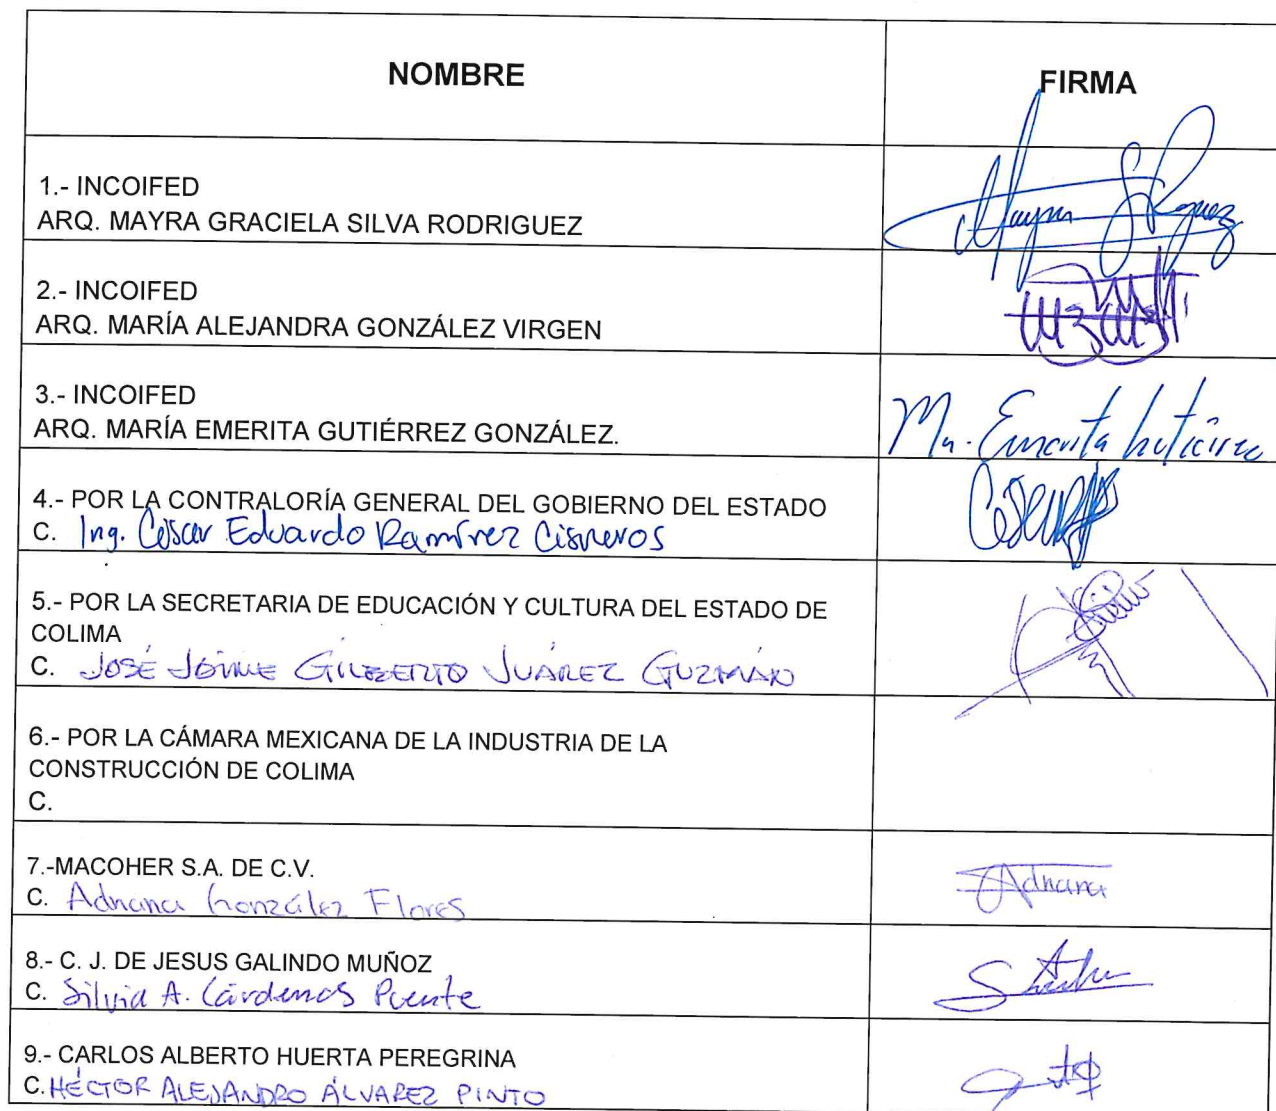 NOMBRE
FIRMA
1.- INCOIFED
ARQ. MAYRA GRACIELA SILVA RODRIGUEZ
Mayra S Rguez
2.- INCOIFED
ARQ. MARÍA ALEJANDRA GONZÁLEZ VIRGEN
3.- INCOIFED
ARQ. MARÍA EMERITA GUTIÉRREZ GONZÁLEZ.
Ma. Emerita Gutiérrez
4.- POR LA CONTRALORÍA GENERAL DEL GOBIERNO DEL ESTADO
C. Ing. César Eduardo Ramírez Cisneros
5.- POR LA SECRETARIA DE EDUCACIÓN Y CULTURA DEL ESTADO DE
COLIMA
C. JOSÉ JAIME GILBERTO JUÁREZ GUZMÁN
6.- POR LA CÁMARA MEXICANA DE LA INDUSTRIA DE LA
CONSTRUCCIÓN DE COLIMA
C.
7.-MACOHER S.A. DE C.V.
C. Adriana González Flores
Adriana
8.- C. J. DE JESUS GALINDO MUÑOZ
C. Silvia A. Cárdenas Puente
9.- CARLOS ALBERTO HUERTA PEREGRINA
C. HÉCTOR ALEJANDRO ÁLVAREZ PINTO